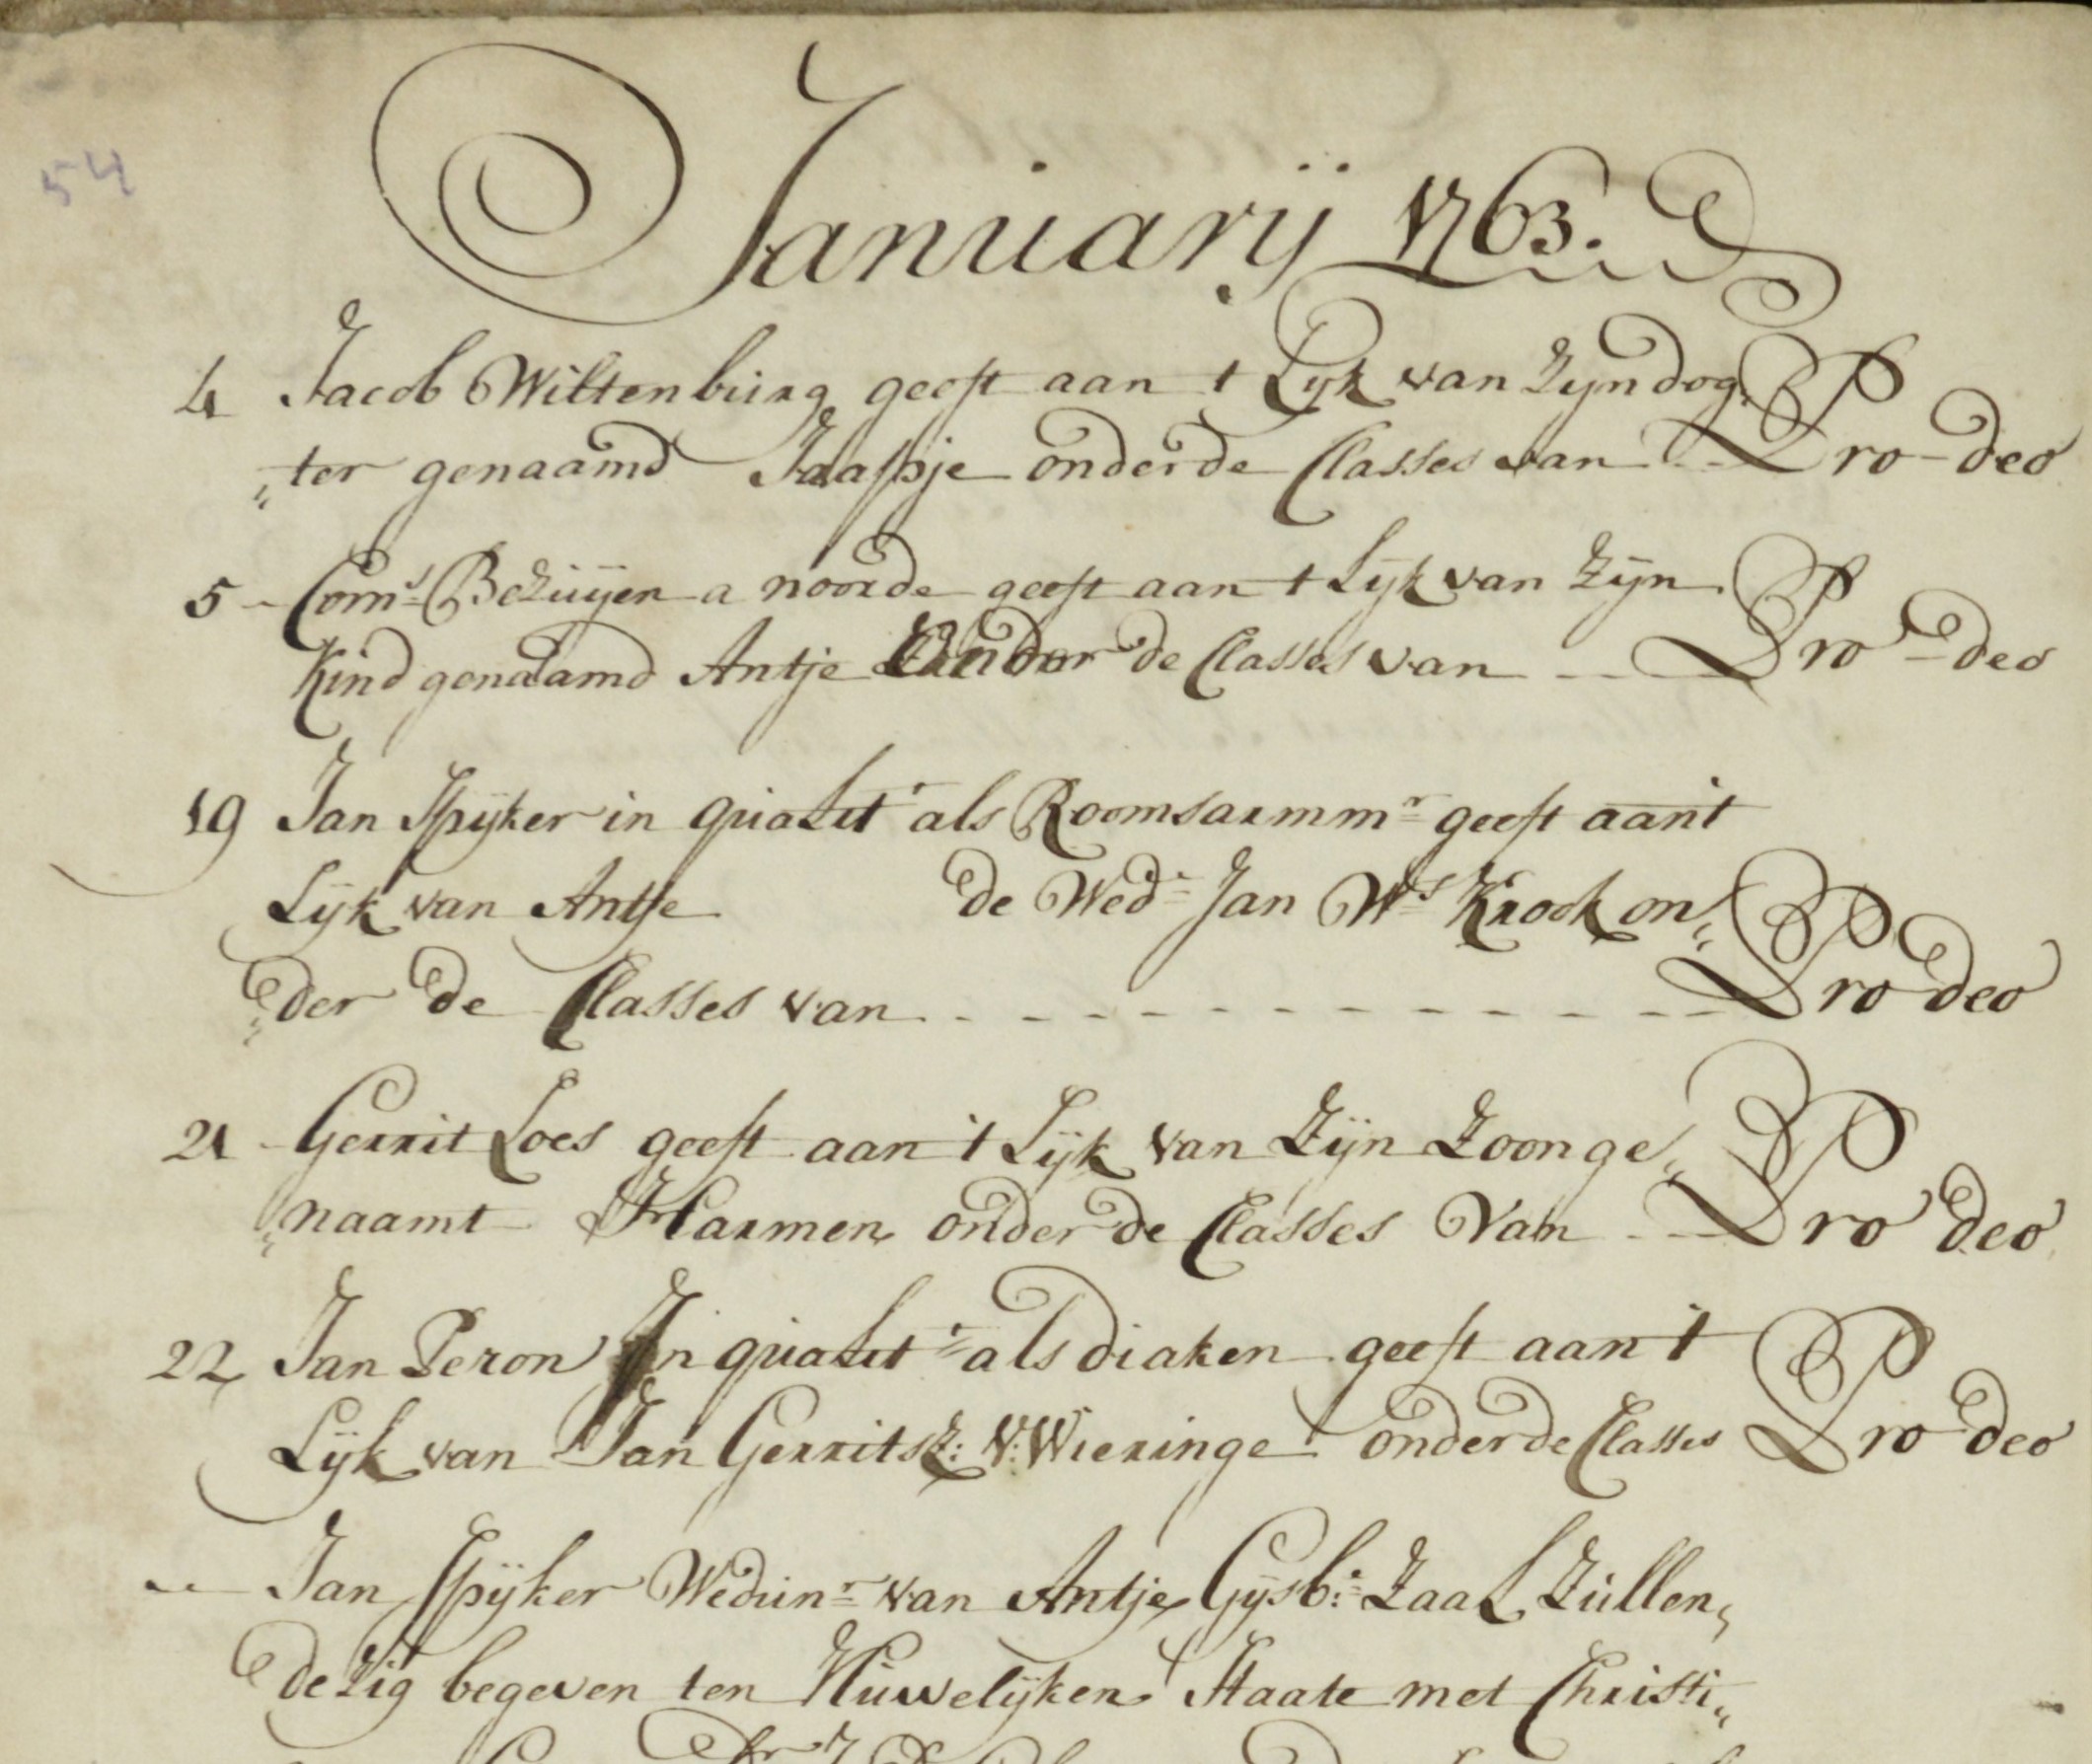 54
Januarij 1763.
4 Jacob Wiltenburg geeft aan t Lijk van Zijn dog„
„ter genaamd Jaapje onder de Classes van Pro deo
5 Corns Bezuijen a noorde geeft aan t Lijk van Zijn
Kind genaamd Antje onder de Classes van Pro deo
19 Jan Spijker in qualit als Roomsarmmr geeft aan't
Lijk van Antje de Wed: Jan Ws Krook on„
„der de Classes van - - - - - - - - - - - - Pro deo
21 Gerrit Loes geeft aan 't Lijk van Zijn Zoon ge„
„naamt Harmen onder de Classes Van Pro deo
22 Jan Peron In qualit als Diaken geeft aan 't
Lijk van Jan Gerritsz: V: Wieringe onder de Classes Pro deo
„ Jan Spijker Weduwr van Antje Gijsb: Zaal Zullen„
de zig begeven ten Huwelijken Staate met Christi„